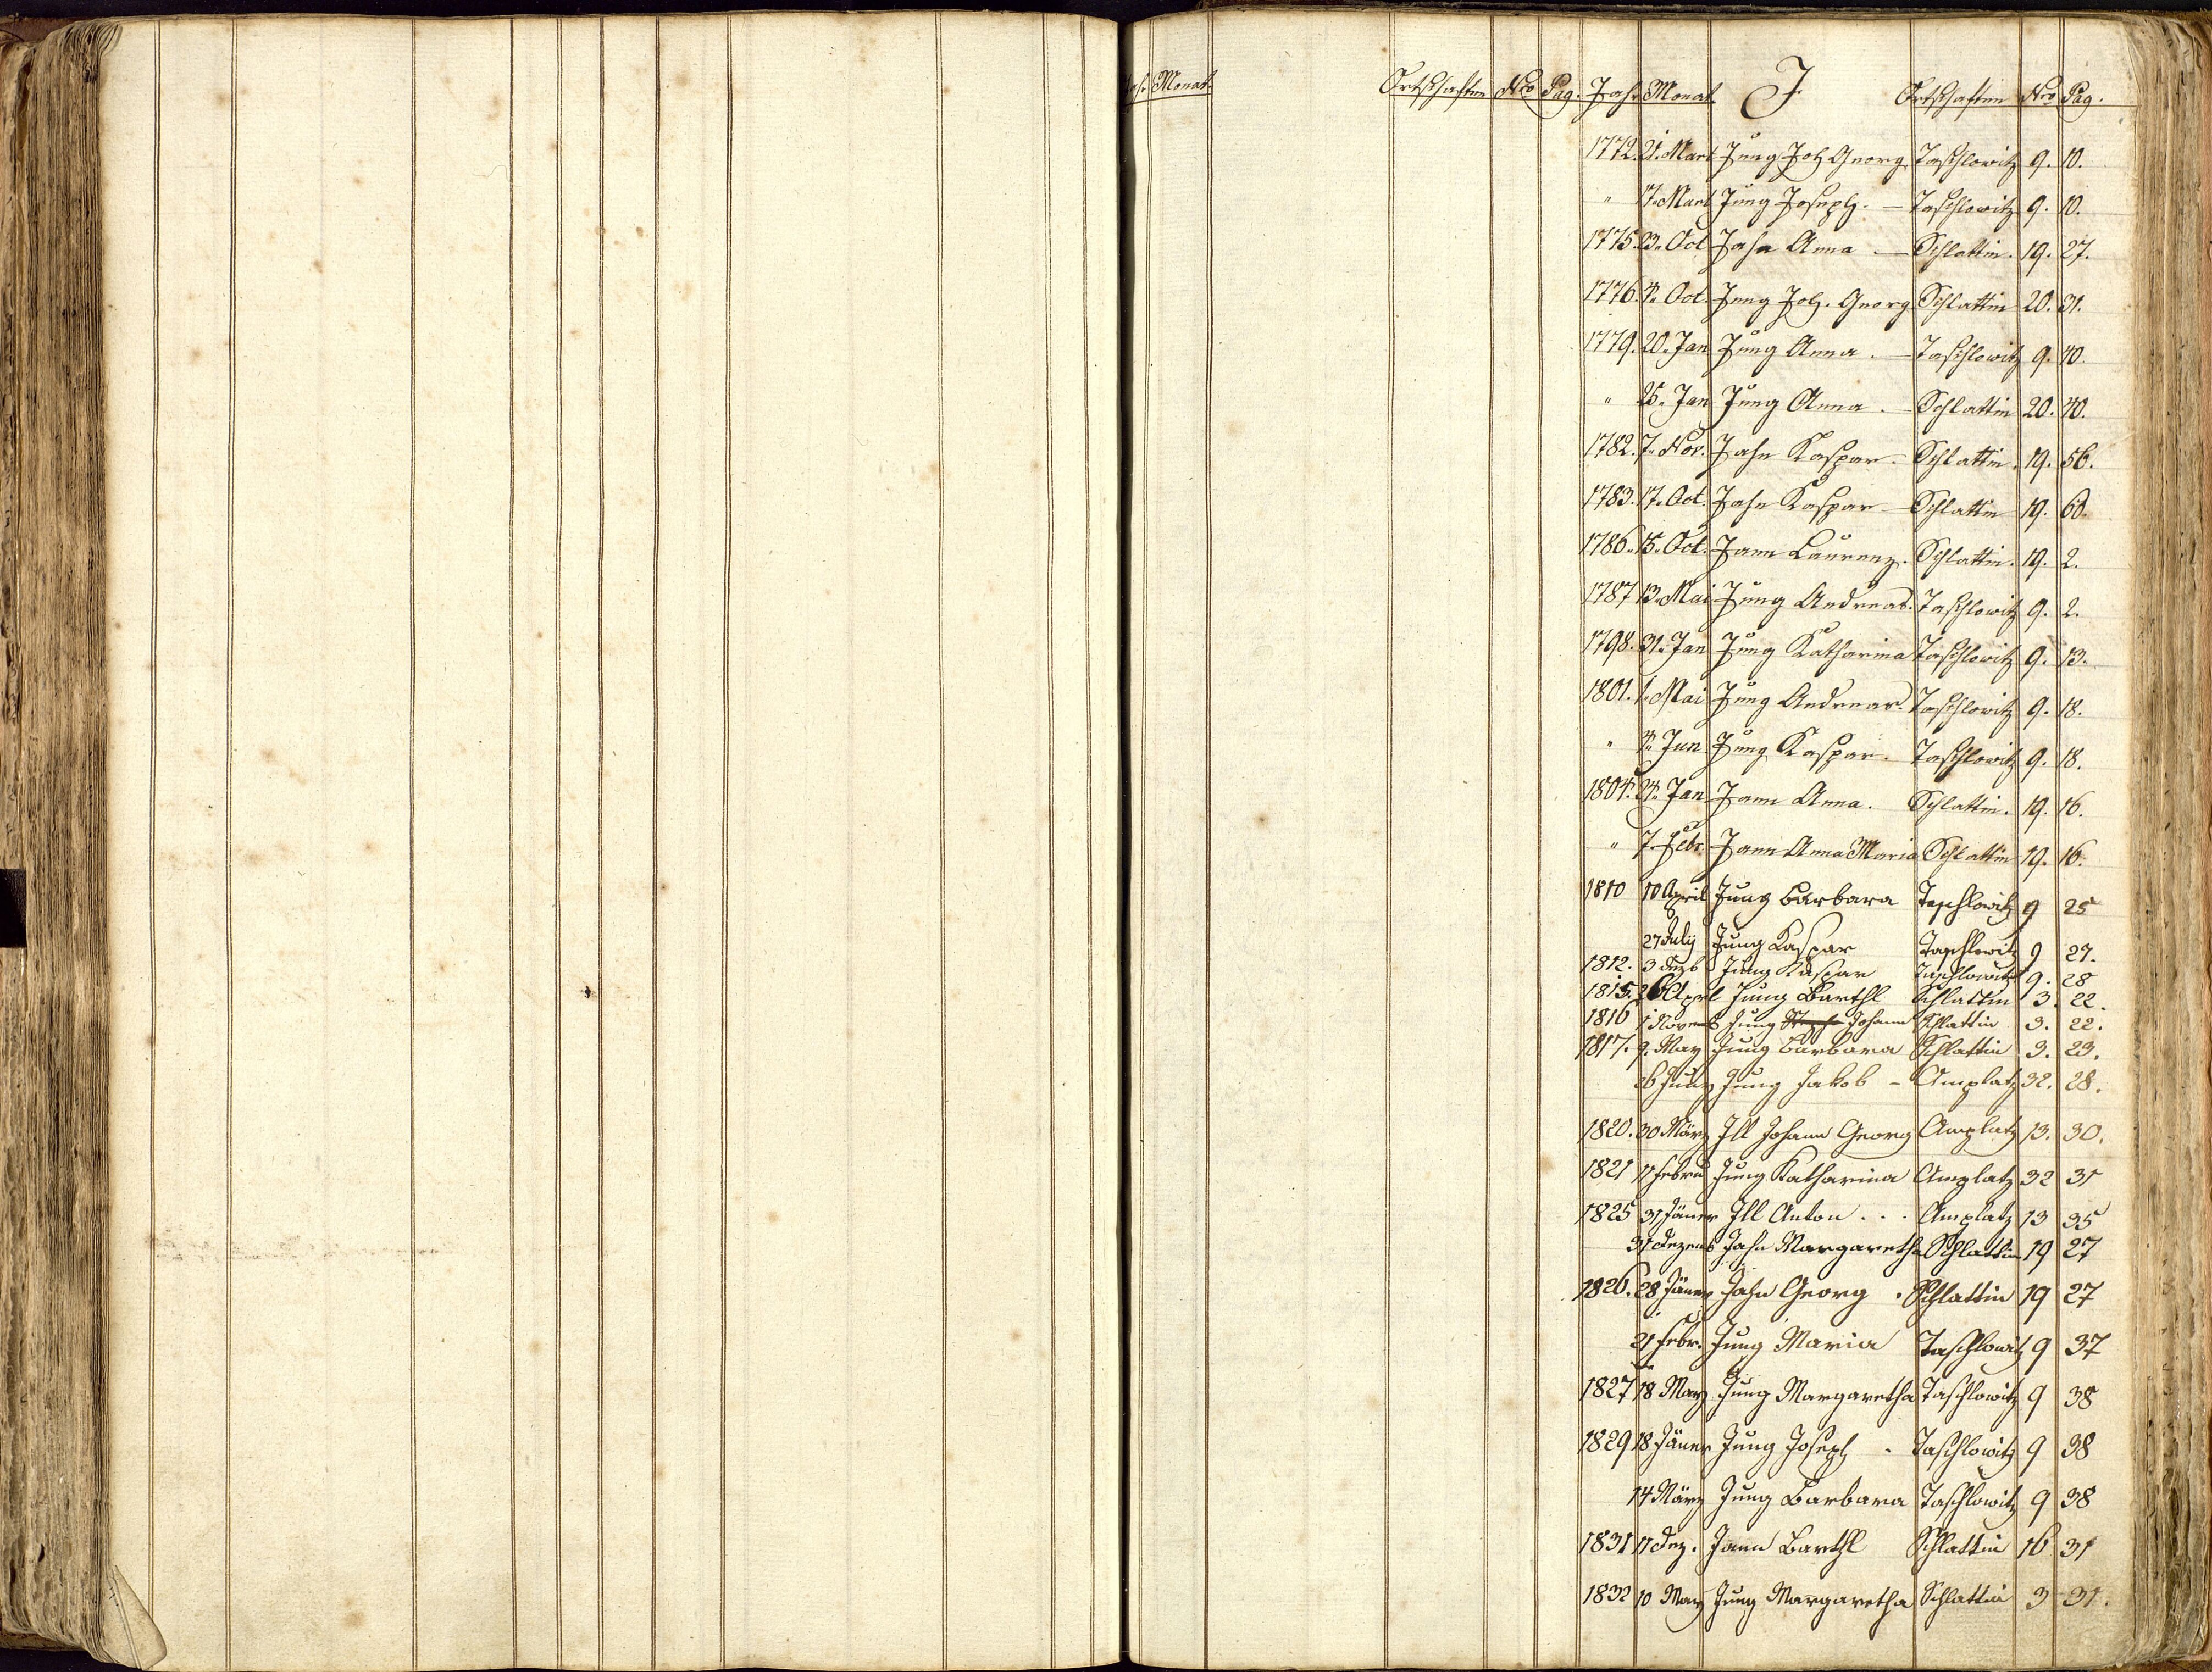 Jahr Monat Ortschaften Nro Pag. Jahr Monat J Ortschaften Nro Pag.
1772. 21. Mart Jung Joh Georg Taschlowitz 9. 10.
" 17. Mart Jung Joseph. — Taschlowitz 9. 10.
1775. 23. Oct Jahn Anna. — Schlattin. 19. 27.
1776. 4. Oct. Jung Joh. Georg Schlattin 20. 31.
1779. 20. Jan Jung Anna. — Taschlowitz 9. 40.
" 25. Jan Jung Anna. — Schlattin 20. 40.
1782. 7. Nov. Jahn Kaspar. — Schlattin. 19. 56.
1783. 17. Oct. Jahn Kaspar — Schlattin 19. 60.
1786. 15. Oct. Jann Laurenz. Schlattin. 19. 2.
1787 13. Mai Jung Andreas. Taschlowitz 9. 2.
1798. 31. Jan Jung Katharina Taschlowitz 9. 13.
1801. 1. Mai Jung Andreas. Taschlowitz 9. 18.
" 4. Jun Jung Kaspar. Taschlowitz 9. 18.
1804. 24. Jan Jann Anna. Schlattin. 19. 16.
" 7. Febr. Jann Anna Maria Schlattin 19. 16.
1810 10 April Jung Barbara Taschlowitz 9 25
27 July Jung Kaspar Taschlowitz 9 27.
1812. 3 Dezb Jung Kaspar Taschlowitz 9. 28
1815. 26 Aprel Jung Barthl Schlattin 3. 22.
1816 1 Novemb Jung Johann Schlattin 3. 22.
1817. 9. May Jung Barbara Schlattin 3. 23.
26 Juny Jung Jakob – Amplatz 32. 28.
1820. 30 März Ill Johann Georg Amplatz 13. 30.
1821 11 Febru Jung Katharina Amplatz 32 31
1825 31 Jäner Ill Anton . . . Amplatz 13 35
31 Dezemb Jahn Margaretha Schlattin 19 27
1826. 28 Jäner Jahn Georg . Schlattin 19 27
21 Febr. Jung Maria Taschlowitz 9 37
1827 18 May Jung Margaretha Taschlowitz 9 38
1829 18 Jäner Jung Joseph . Taschlowitz 9 38
14 März Jung Barbara Taschlowitz 9 38
1831 11 Dez. Jann Barthl Schlattin 16 31
1832 10 May Jung Margaretha Schlattin 3 31.